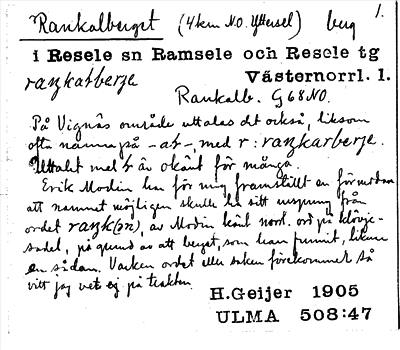 Rankalberget (4 km N.O. Yttersel) berg 1.
i Resele sn Ramsele och Resele tg
Västernorrl. l.
Rankalb. G68NO.
På Vignäs område uttalas det också, liksom
ofta namn på -ab-, med r: raŋkarberjə.
Uttalet med är okänt för många.
Erik Modin har för mig framställt en förmodan
att namnet möjligen skulle ha sitt ursprung från
ordet raŋk(ən), av Modin känt nord. ord på klövje-
sadel, på grund av att berget, som han funnit, liknar
en sådan. Varken ordet eller saken förekommer så
vitt jag vet ej på trakten.
H.Geijer 1905
ULMA 508:47